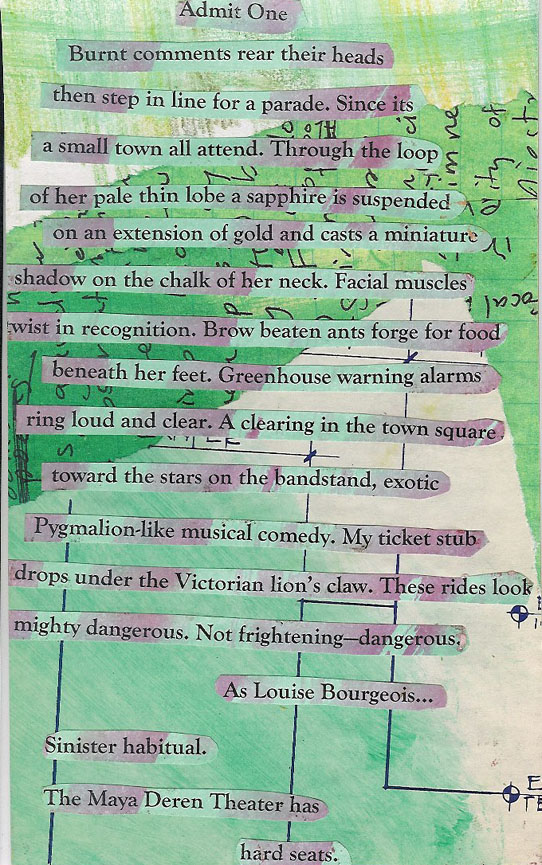 Admit One
Burnt comments rear their heads
then step in line for a parade. Since its
a small town all attend. Through the loop
of her pale thin lobe a sapphire is suspended
on an extension of gold and casts a miniature
shadow on the chalk of her neck. Facial muscles
twist in recognition. Brow beaten ants forge for food
beneath her feet. Greenhouse warning alarms
ring loud and clear. A clearing in the town square
toward the stars on the bandstand, exotic
Pygmalion-like musical comedy. My ticket stub
drops under the Victorian lion's claw. These rides look
mighty dangerous. Not frightening—dangerous.
As Louise Bourgeois...
Sinister habitual.
The Maya Deren Theater has
hard seats.